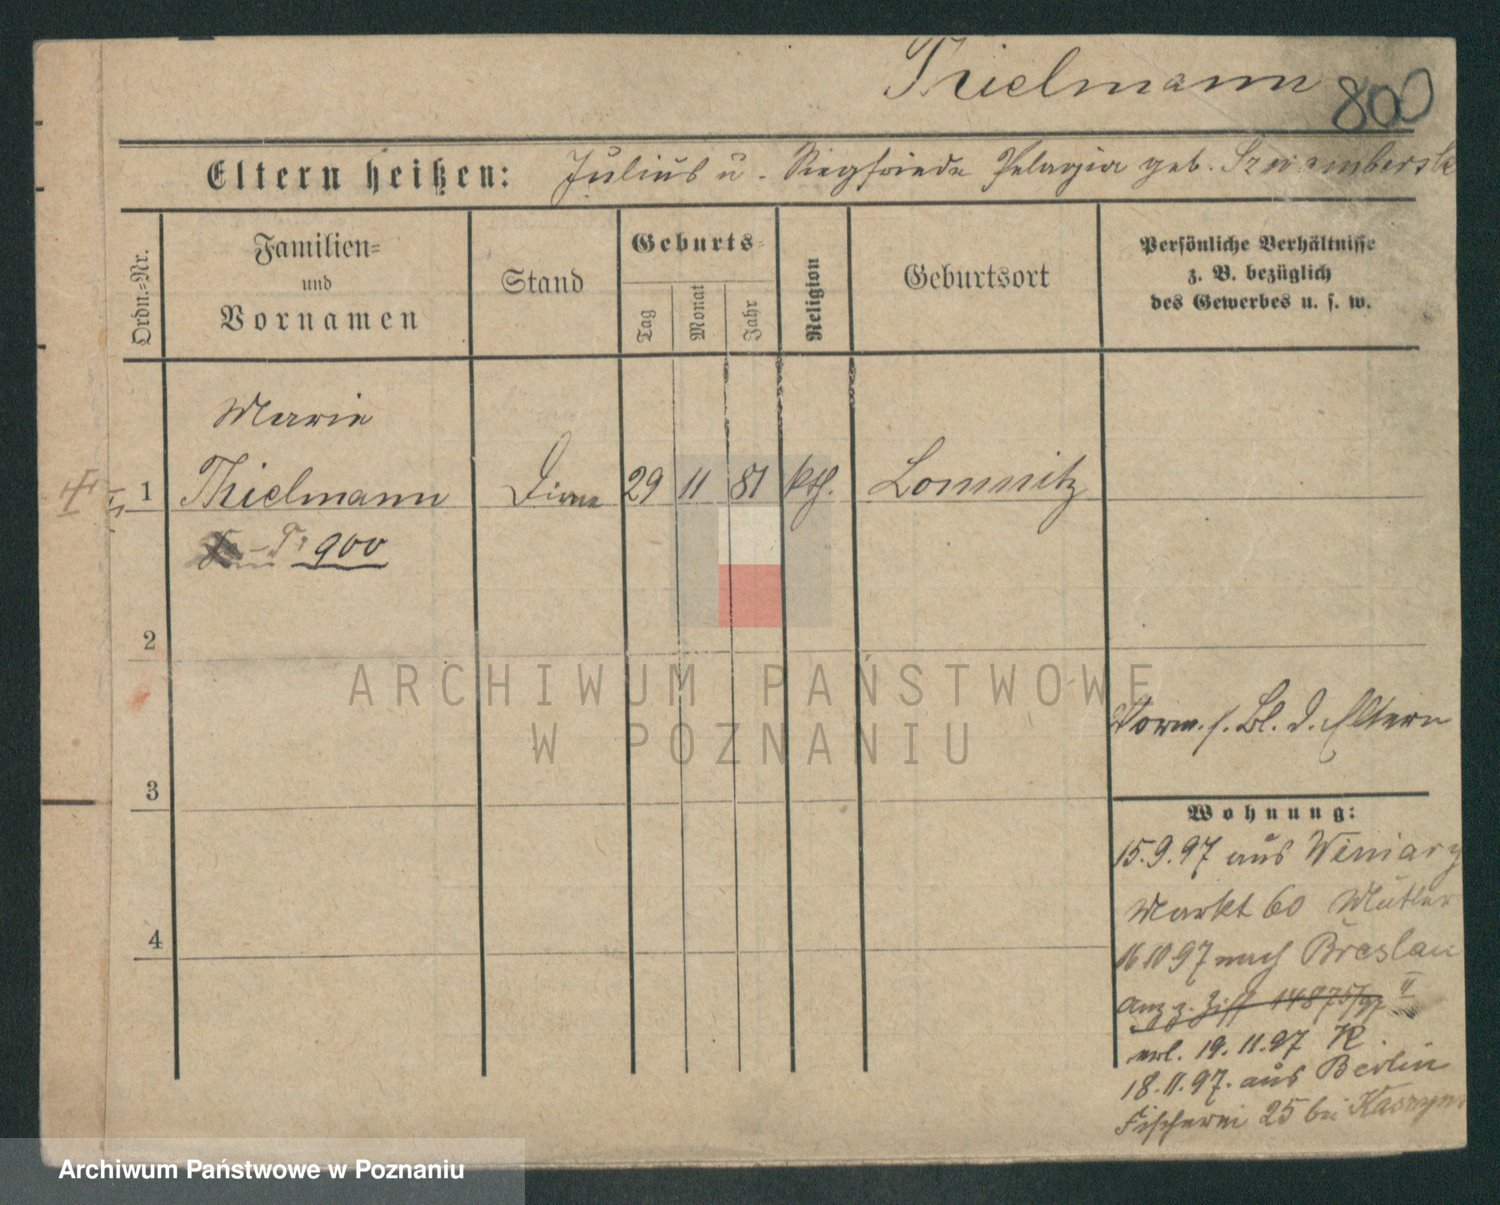 Thielmann 800
Eltern heißen: Julius u. Siegfriede Pelagia geb.
Ordn.-Nr.
Familien-
und
Vornamen
Stand
Geburts-
Tag
Monat
Jahr
Religion
Geburtsort
Persönliche Verhältnisse
z. B. bezüglich
des Gewerbes u. s. w.
Marie
1 Thielmann Dirne 29 11 81 kth. Lomnitz
900
2
ARCHIWUM PAŃSTWOWE
W POZNANIU
Vorm. s. Bl. d. Eltern
3
Wohnung:
15.9.97 aus Winiary
Markt 60 Mutter
4
16 10 97 nach Breslau
Anz. z. Ziff 14875/97 II
erl. 19.11.97
18.11.97. aus Berlin
Fischerei 25 bei
Archiwum Państwowe w Poznaniu